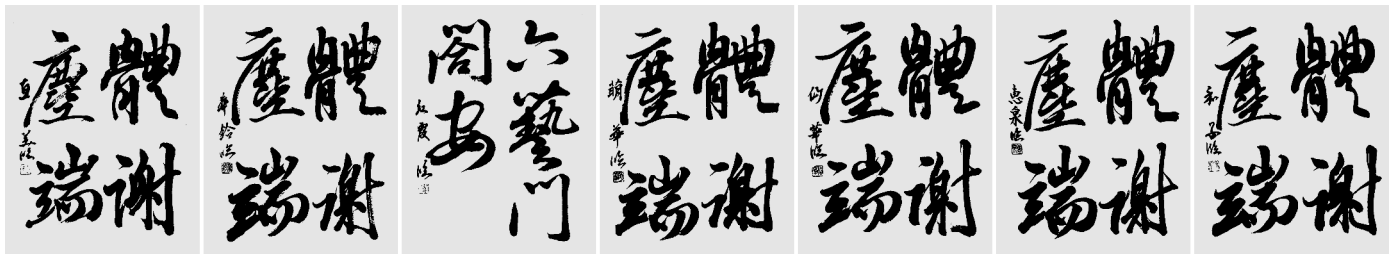 體謝
塵端
直美臨
體謝
塵端
六藝門
閣安
紅霞臨
體謝
塵端
萌華臨
體謝
塵端
體謝
塵端
惠泉臨
體謝
塵端